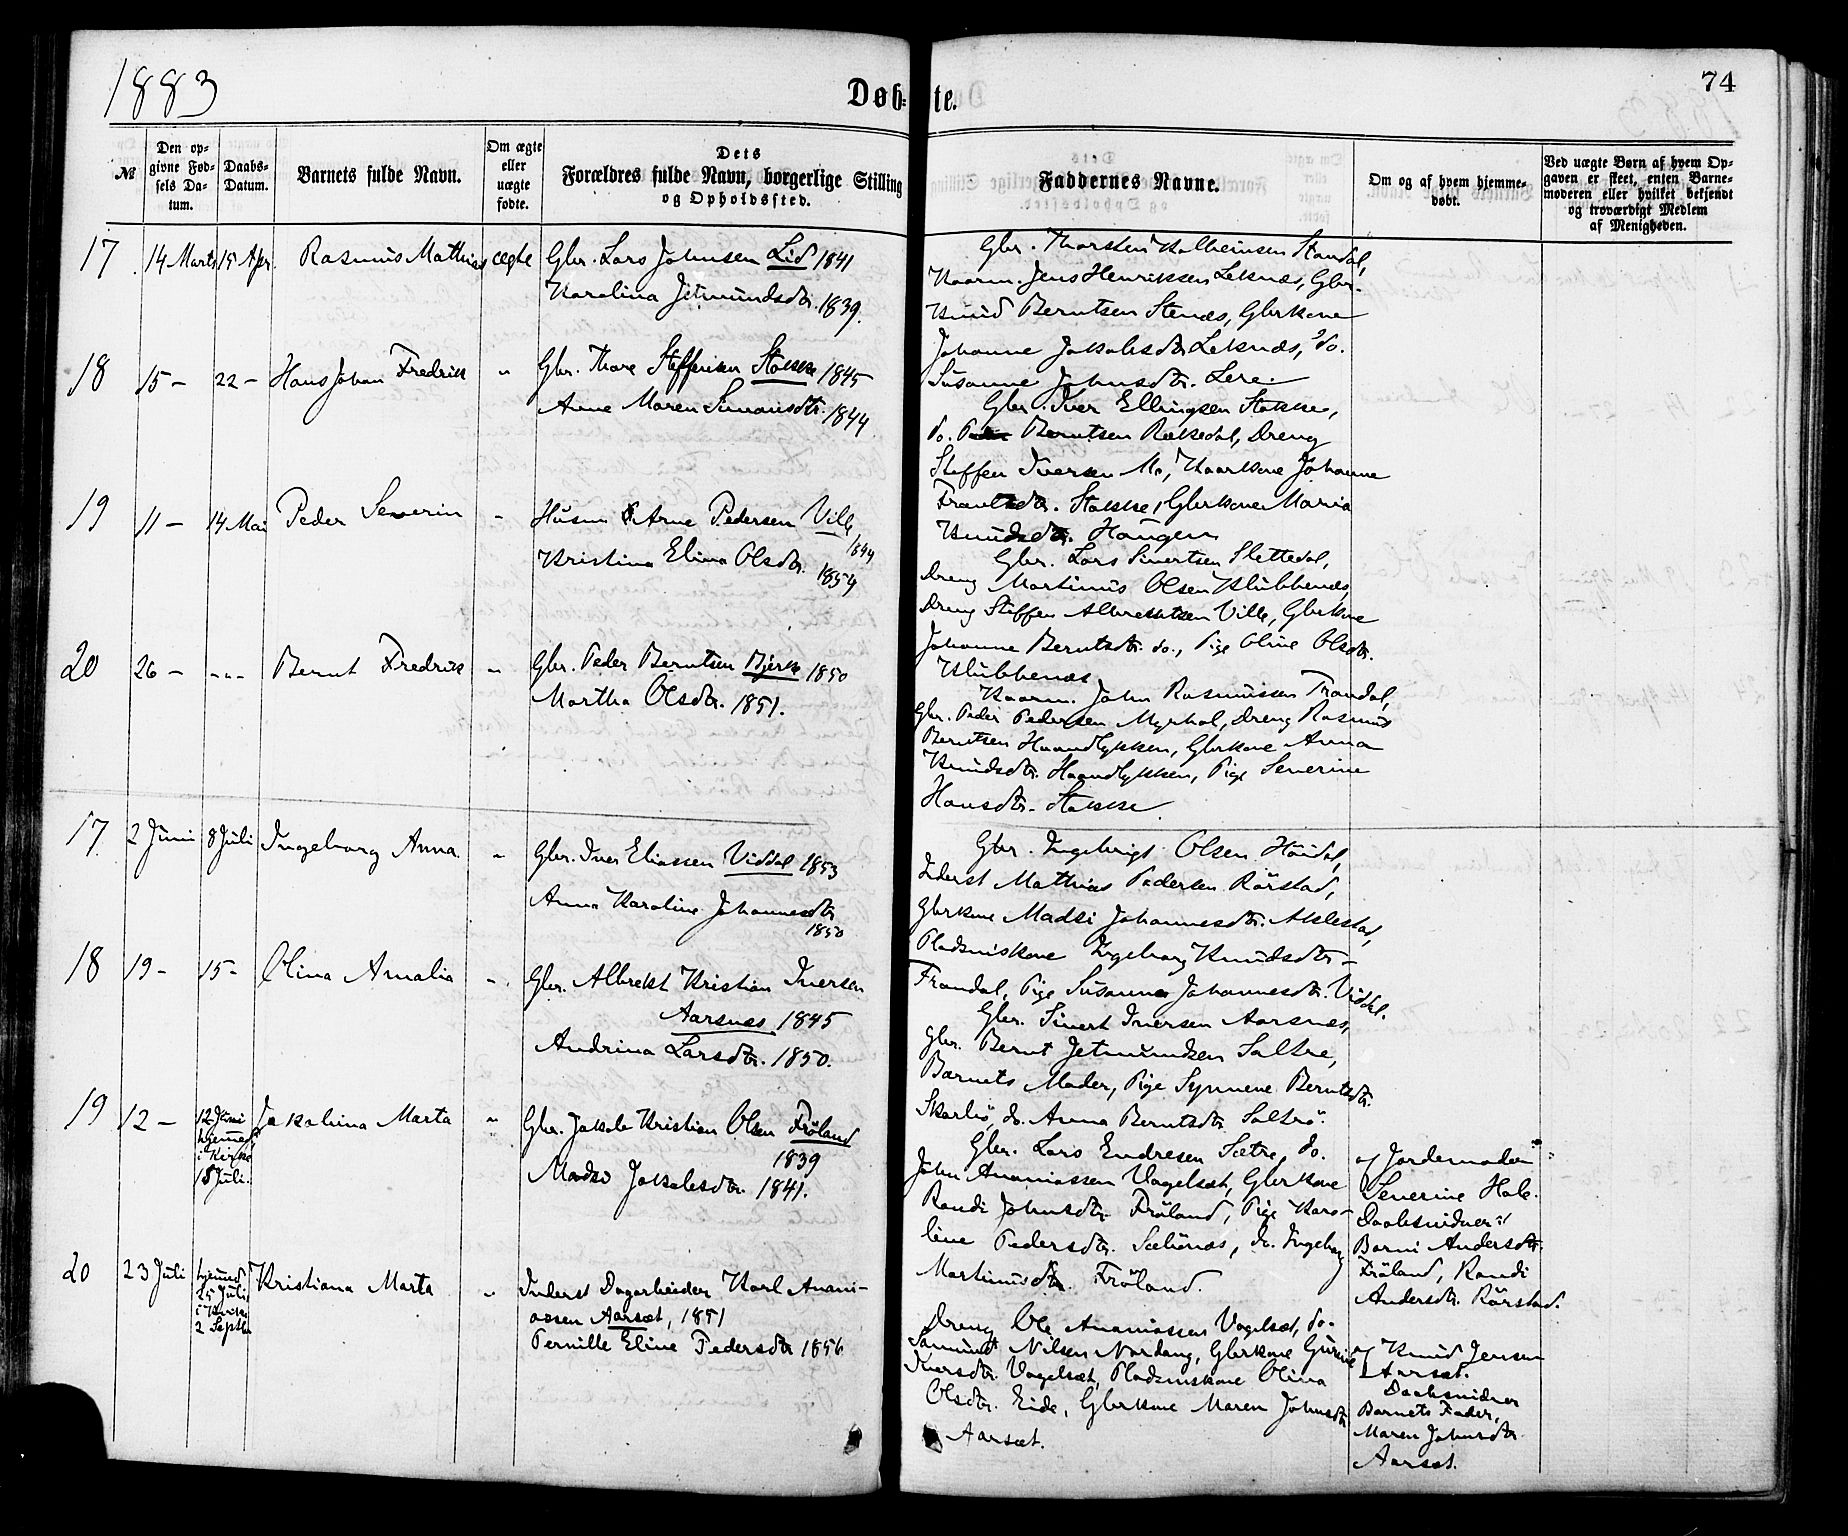 1883
Døb=
te.
74
№
Den op-
givne Fød-
sels Da-
tum.
Daabs-
Datum.
Barnets fulde Navn.
Om ægte
eller
uægte
fødte.
Dets
Forældres fulde Navn, borgerlige Stilling
og Opholdssted.
Faddernes Navne.
Om og af hvem hjemme-
døbt.
Ved uægte Børn af hvem Op-
gaven er skeet, enten Barne-
moderen eller hvilket bekjendt
og troværdigt Medlem
af Menigheden.
17 14 Marts 15 Apr. Rasmus Mathias ægte Gbr. Lars Johnsen Lid 1841
Karolina Jetmundsdtr. 1839.
Gbr. Thorsten Standal,
Kaarm. Jens Henriksen Leknæs, Gbr.
Knud Berntsen Stenæs, Gbrkone
Johanne Jakobsdtr Leknæs, do.
Susanne Johnsdtr. Lere.
18 15 - 22 - Hans Johan Fredrik " Gbr. Thore Steffensen Stokke 1845
Anne Maren Simonsdtr. 1844
Gbr. Iver Ellingsen Stokke,
do. Berntsen Rekkedal, Dreng
Steffen Iversen Mo, Kaarkone Johanne
Frantsdtr. Stokke, Gbrkone Maria
Knudsdtr. Haugen
19 11 - 14 Mai Peder Severin " Husm Arne Pedersen Ville
1844
Kristina Elina Olsdtr. 1854
Gbr. Lars Sivertsen Slettedal,
Dreng Martinus Olsen Klubbenæs
Dreng Steffen Albrektsen Ville, Gbrkone
Johanne Berntsdtr. do., Pige Oline Olsdtr.
Klubbenæs
20 26 - " " " Bernt Fredrik " Gbr. Peder Berntsen Bjerk 1850
Martha Olsdtr. 1851.
Kaarm. John Rasmussen Trandal,
Gbr. Peder Pedersen Myrhol, Dreng Rasmus
Berntsen Haandlykken, Gbrkone Anna
Knudsdtr. Haandlykken, Pige Severine
Hansdtr. Stokke
17 2 Juni 8 Juli Ingeborg Anna " Gbr. Iver Eliassen Viddal 1853
Anna Karoline Johannesdtr
1850
Gbr. Ingebrigt Olsen Houdal,
Inderst Mathias Pedersen Rørstad,
Gbrkone Madsi Johannesdtr. Aklestad,
Pladsmiskone Ingeborg Knudsdtr
Trandal, Pige Susanne Johannesdtr. Viddal.
18 19 - 15 - Olina Amalia " Gbr. Albrekt Kristian Iversen
Aarsnæs 1845
Andrina Larsdtr. 1850.
Gbr. Sivert Iversen Aarsnæs,
Gbr. Bernt Jetmundsen Saltre,
Barnets Moder, Pige Synneve Berntsdtr.
Skorbø, do. Anna Berntsdtr. Saltrø.
19 12 - 12 Juni
hjemme
i Kirke
15 Juli. Jakobina Marta " Gbr. Jakob Kristian Olsen Frøland
1839
Madsi Jakobsdtr. 1841.
Gbr. Lars Endresen Sætre, do.
John Ananiassen Vagelsæt, Gbrkone
Randi Johnsdtr. Frøland, Pige Karo-
line Pedersdtr. Sæbønæs, do. Ingeborg
Martinusdtr. Frøland.
af Jordemoder
Severine Hole.
Daabsvidner:
Barni Andersdtr.
Frøland, Randi
Andersdtr. Rørstad.
20 23 Juli hjemme
25 Juli
i Kirke
2 Septbr Kristiana Marta " Inderst Dagarbeider Karl Anani-
assen Aarsæt, 1851
Pernille Eline Pedersdtr 1856
Dreng Ole Ananiassen Vagelsæt, do.
Samund Nilsen Nordang, Gbrkone Gurine
Iversdtr. Vagelsæt, Pladsmiskone Olina
Olsdtr. Eide, Gbrkone Maren Johnsdtr
Aarsæt.
af Knud Jensen
Aarsæt.
Daabsvidner
Barnets Fader,
Maren Johnsdtr
Aarsæt.